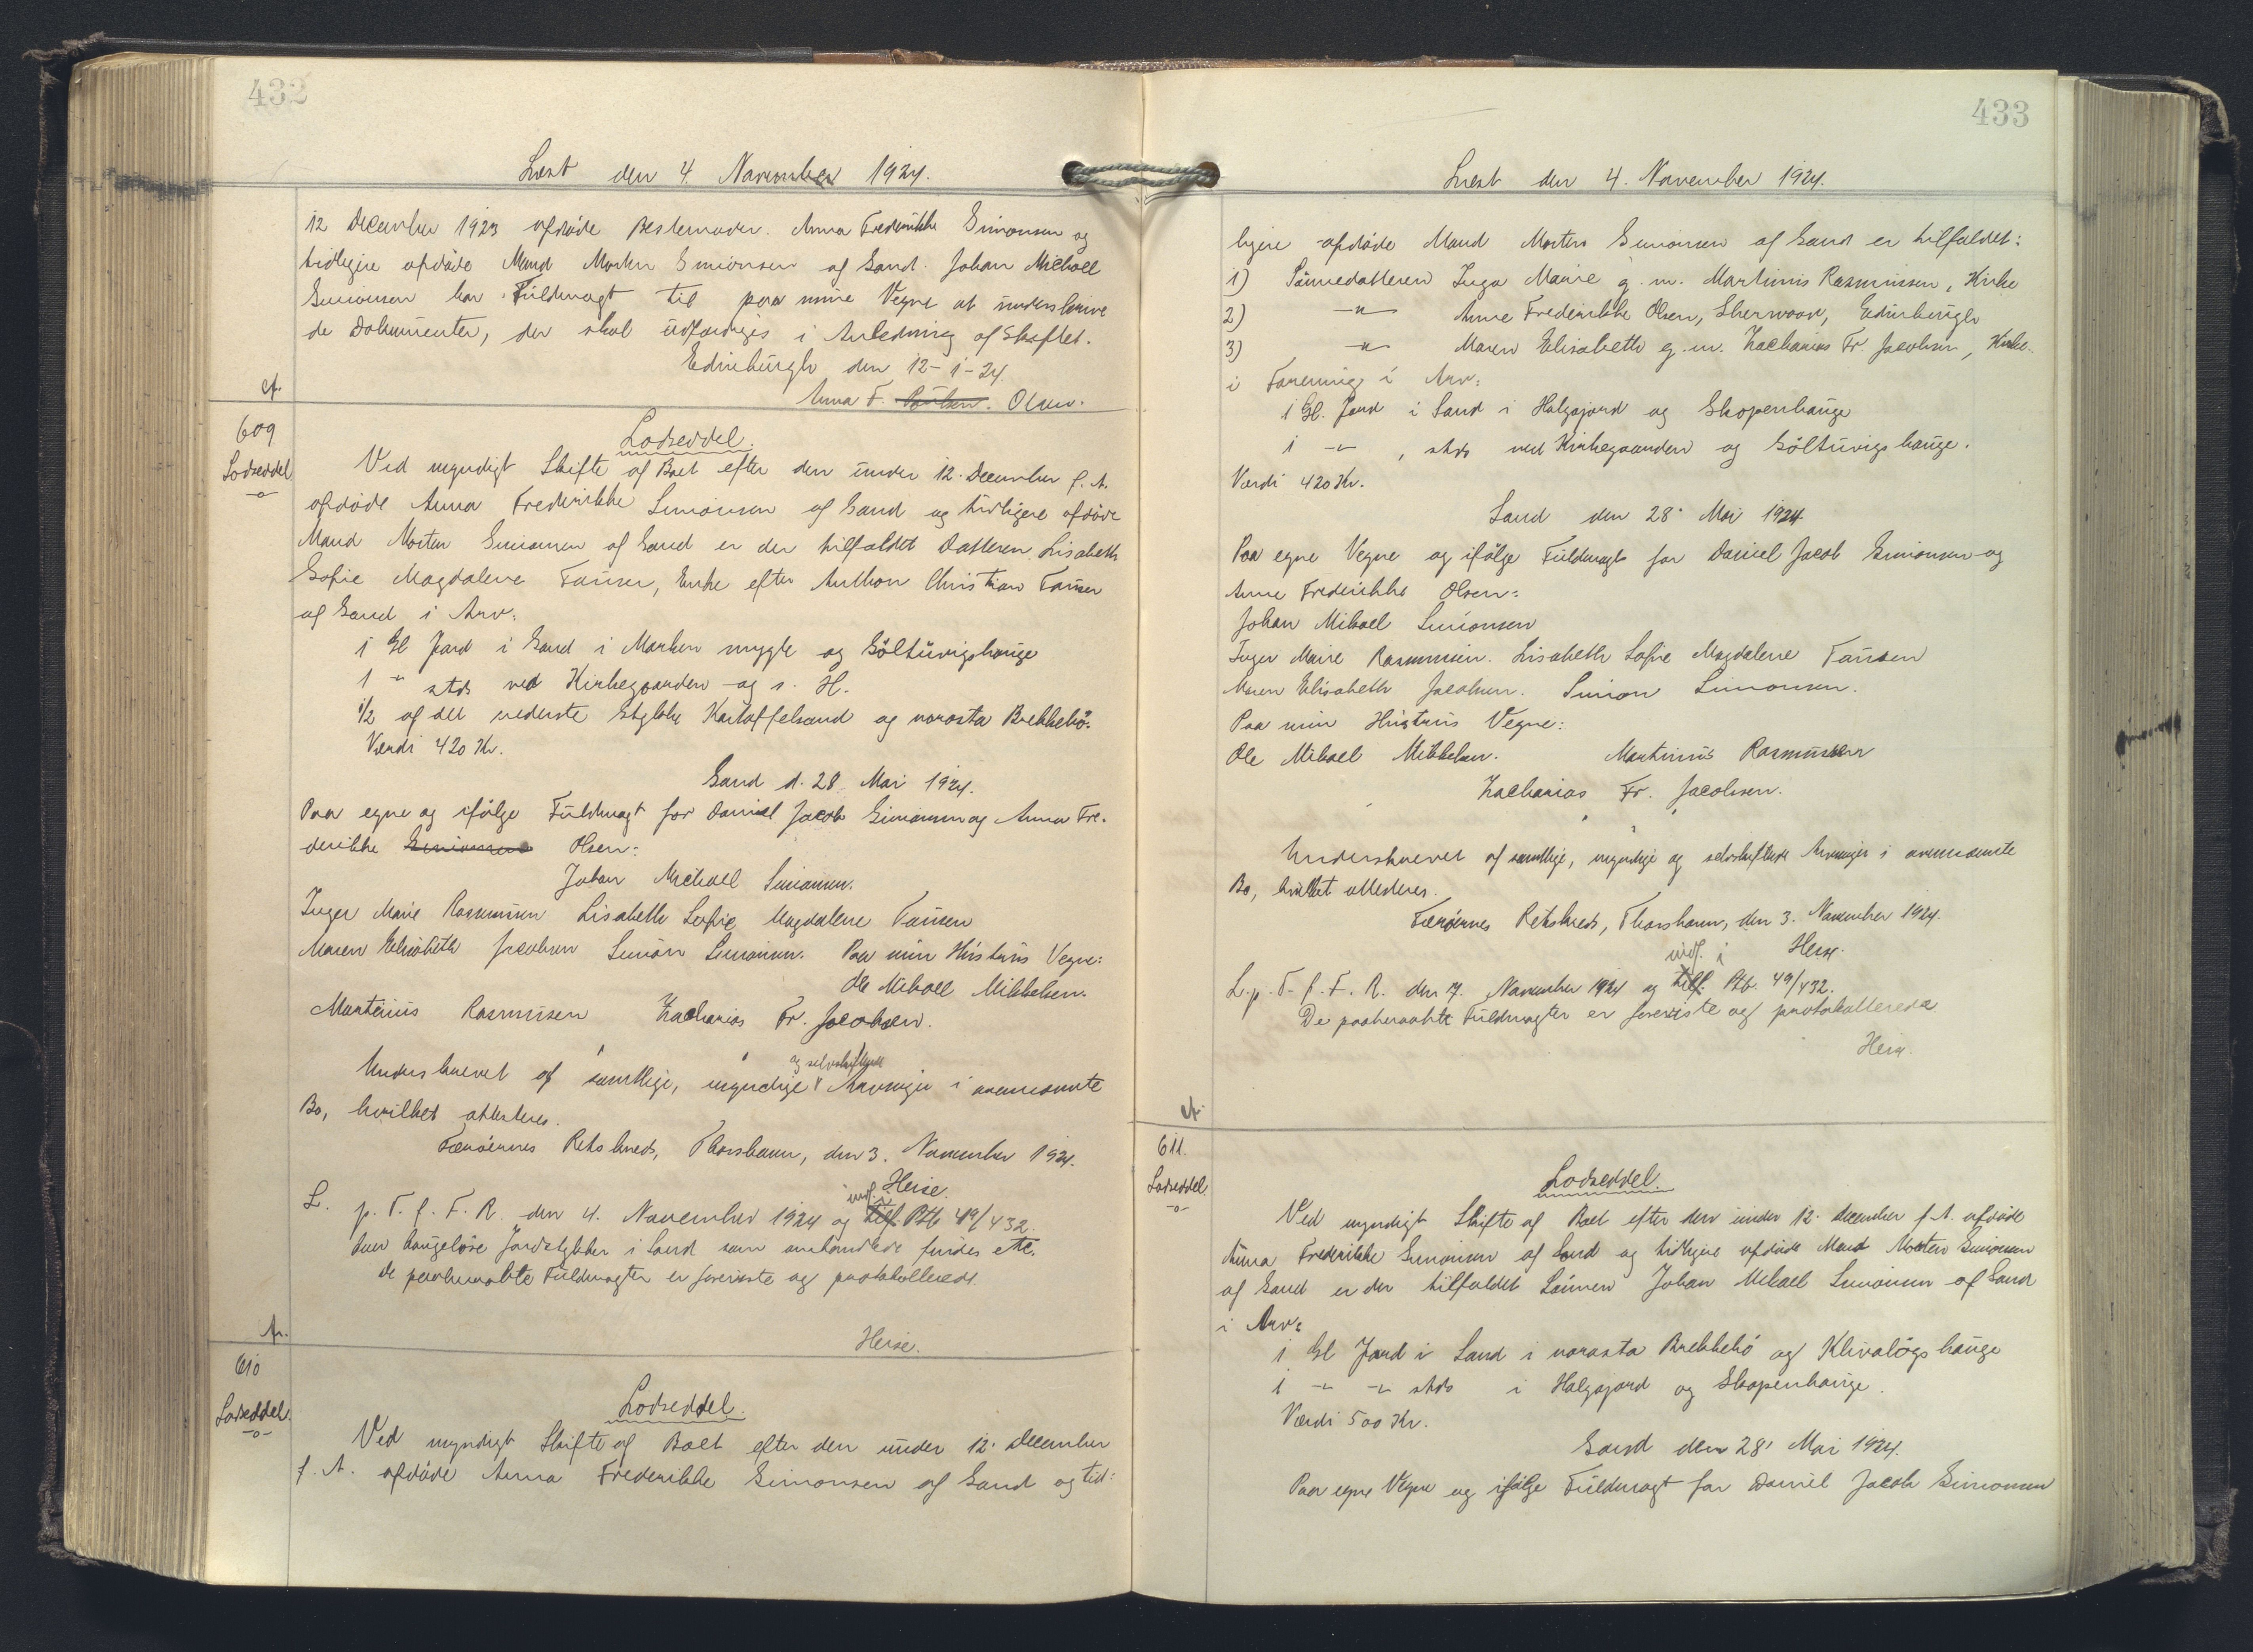 432
Læst den 4. November 1924.
12 December 1923 afdøde Bestemoder Anna Frederikke Simonsen og
tidligere afdøde Mand Morten Simonsen af Sand. Johan Michael
Simonsen har Fuldmagt til paa mine Vegne at underskrive
de Dokumenter, der skal udfærdiges i Anledning af Skiftet.
Edinburgh den 12-1-24.
Anna F. Poulsen. Olsen.
cf.
609
Lodseddel
-o-
Lodseddel.
Ved myndigt Skifte af Boet efter den under 12. December f. A.
afdøde Anna Frederikke Simonsen af Sand og tidligere afdøde
Mand Morten Simonsen af Sand er der tilfaldet Datteren Lisabeth
Sofie Magdalene Fausen, Enke efter Anthon Christian Fausen
af Sand i Arv:
1 Gl Jord i Sand i Marken mygle og Søltuvigshauge
1 " stds ved Kirkegaarden og s. H.
1/2 af det nederste Stykke Kartoffelsand og norasta Brekkebø.
Værdi 420 Kr.
Sand d. 28. Mai 1924.
Paa egne og ifølge Fuldmagt for Daniel Jacob Simonsen og Anna Fre-
derikke Simonsen Olsen:
Johan Michael Simonsen.
Inger Marie Rasmussen Lisabeth Sofie Magdalene Fausen
Maren Elisabeth Jacobsen Simon Simonsen. Paa min Hustrus Vegne:
Ole Mikael Mikkelsen.
Martinus Rasmussen Zacharias Fr. Jacobsen.
Underskrevet af samtlige, myndige og selvskiftende Arvinger i ovennævnte
Bo, hvilket attesteres.
Færøernes Retskreds, Thorshavn, den 3. November 1924.
Heise.
L. p. T. f. F. R. den 4. November 1924 og tilf. indf. i Ptb 49/432.
hver haugeløse Jordstykker i Sand som omhandlede findes ette.
De paaberaabte Fuldmagter er foreviste og protokollerede.
Heise.
cf.
610
Lodseddel.
-o-
Lodseddel.
Ved myndigt Skifte af Boet efter den under 12. December
f. A. afdøde Anna Frederikke Simonsen af Sand og tid-
433
Læst den 4. November 1924.
ligere afdøde Mand Morten Simonsen af Sand er tilfaldet:
1) Sønnedatteren Inga Marie g. m. Martinus Rasmussen, Kirke
2) -"- Anne Frederikke Olsen, Sherwoor, Edinburgh
3) -"- Maren Elisabeth g. m. Zacharias Fr Jacobsen, Kirke.
i Forening i Arv:
1 Gl. Jord i Sand i Halgajord og Skopenhauge
1 -"- , stds ved Kirkegaarden og Søltuvigshauge.
Værdi 420 Kr.
Sand den 28' Mai 1924
Paa egne Vegne og ifølge Fuldmagt for Daniel Jacob Simonsen og
Anne Frederikke Olsen:
Johan Mikael Simonsen
Inger Marie Rasmussen. Lisabeth Sofie Magdalene Fausen
Maren Elisabeth Jacobsen. Simon Simonsen.
Paa min Hustrus Vegne:
Ole Mikael Mikkelsen. Martinus Rasmussen
Zacharias Fr. Jacobsen.
Underskrevet af samtlige, myndige og selvskiftende Arvinger i ovennævnte
Bo, hvilket attesteres.
Færøernes Retskreds, Thorshavn, den 3. November 1924.
Heise.
L. p. T. f. F. R. den 17. November 1924 og tilf. indf. i Ptb. 49/432.
De paaberaabte Fuldmagter er foreviste og protokollerede
Heise.
cf.
611.
Lodseddel.
-o-
Lodseddel.
Ved myndigt Skifte af Boet efter den under 12. December f. A. afdøde
Anna Frederikke Simonsen af Sand og tidligere afdøde Mand Morten Simonsen
af Sand er der tilfaldet Sønnen Johan Mikael Simonsen af Sand
i Arv:
1 Gl Jord i Sand i norasta Brekkebø og Klivaløgs hauge
1 -"- -"- stds i Halgajord og Skopenhauge.
Værdi 500 Kr.
Sand den 28' Mai 1924.
Paa egne Vegne og ifølge Fuldmagt for Daniel Jacob Simonsen